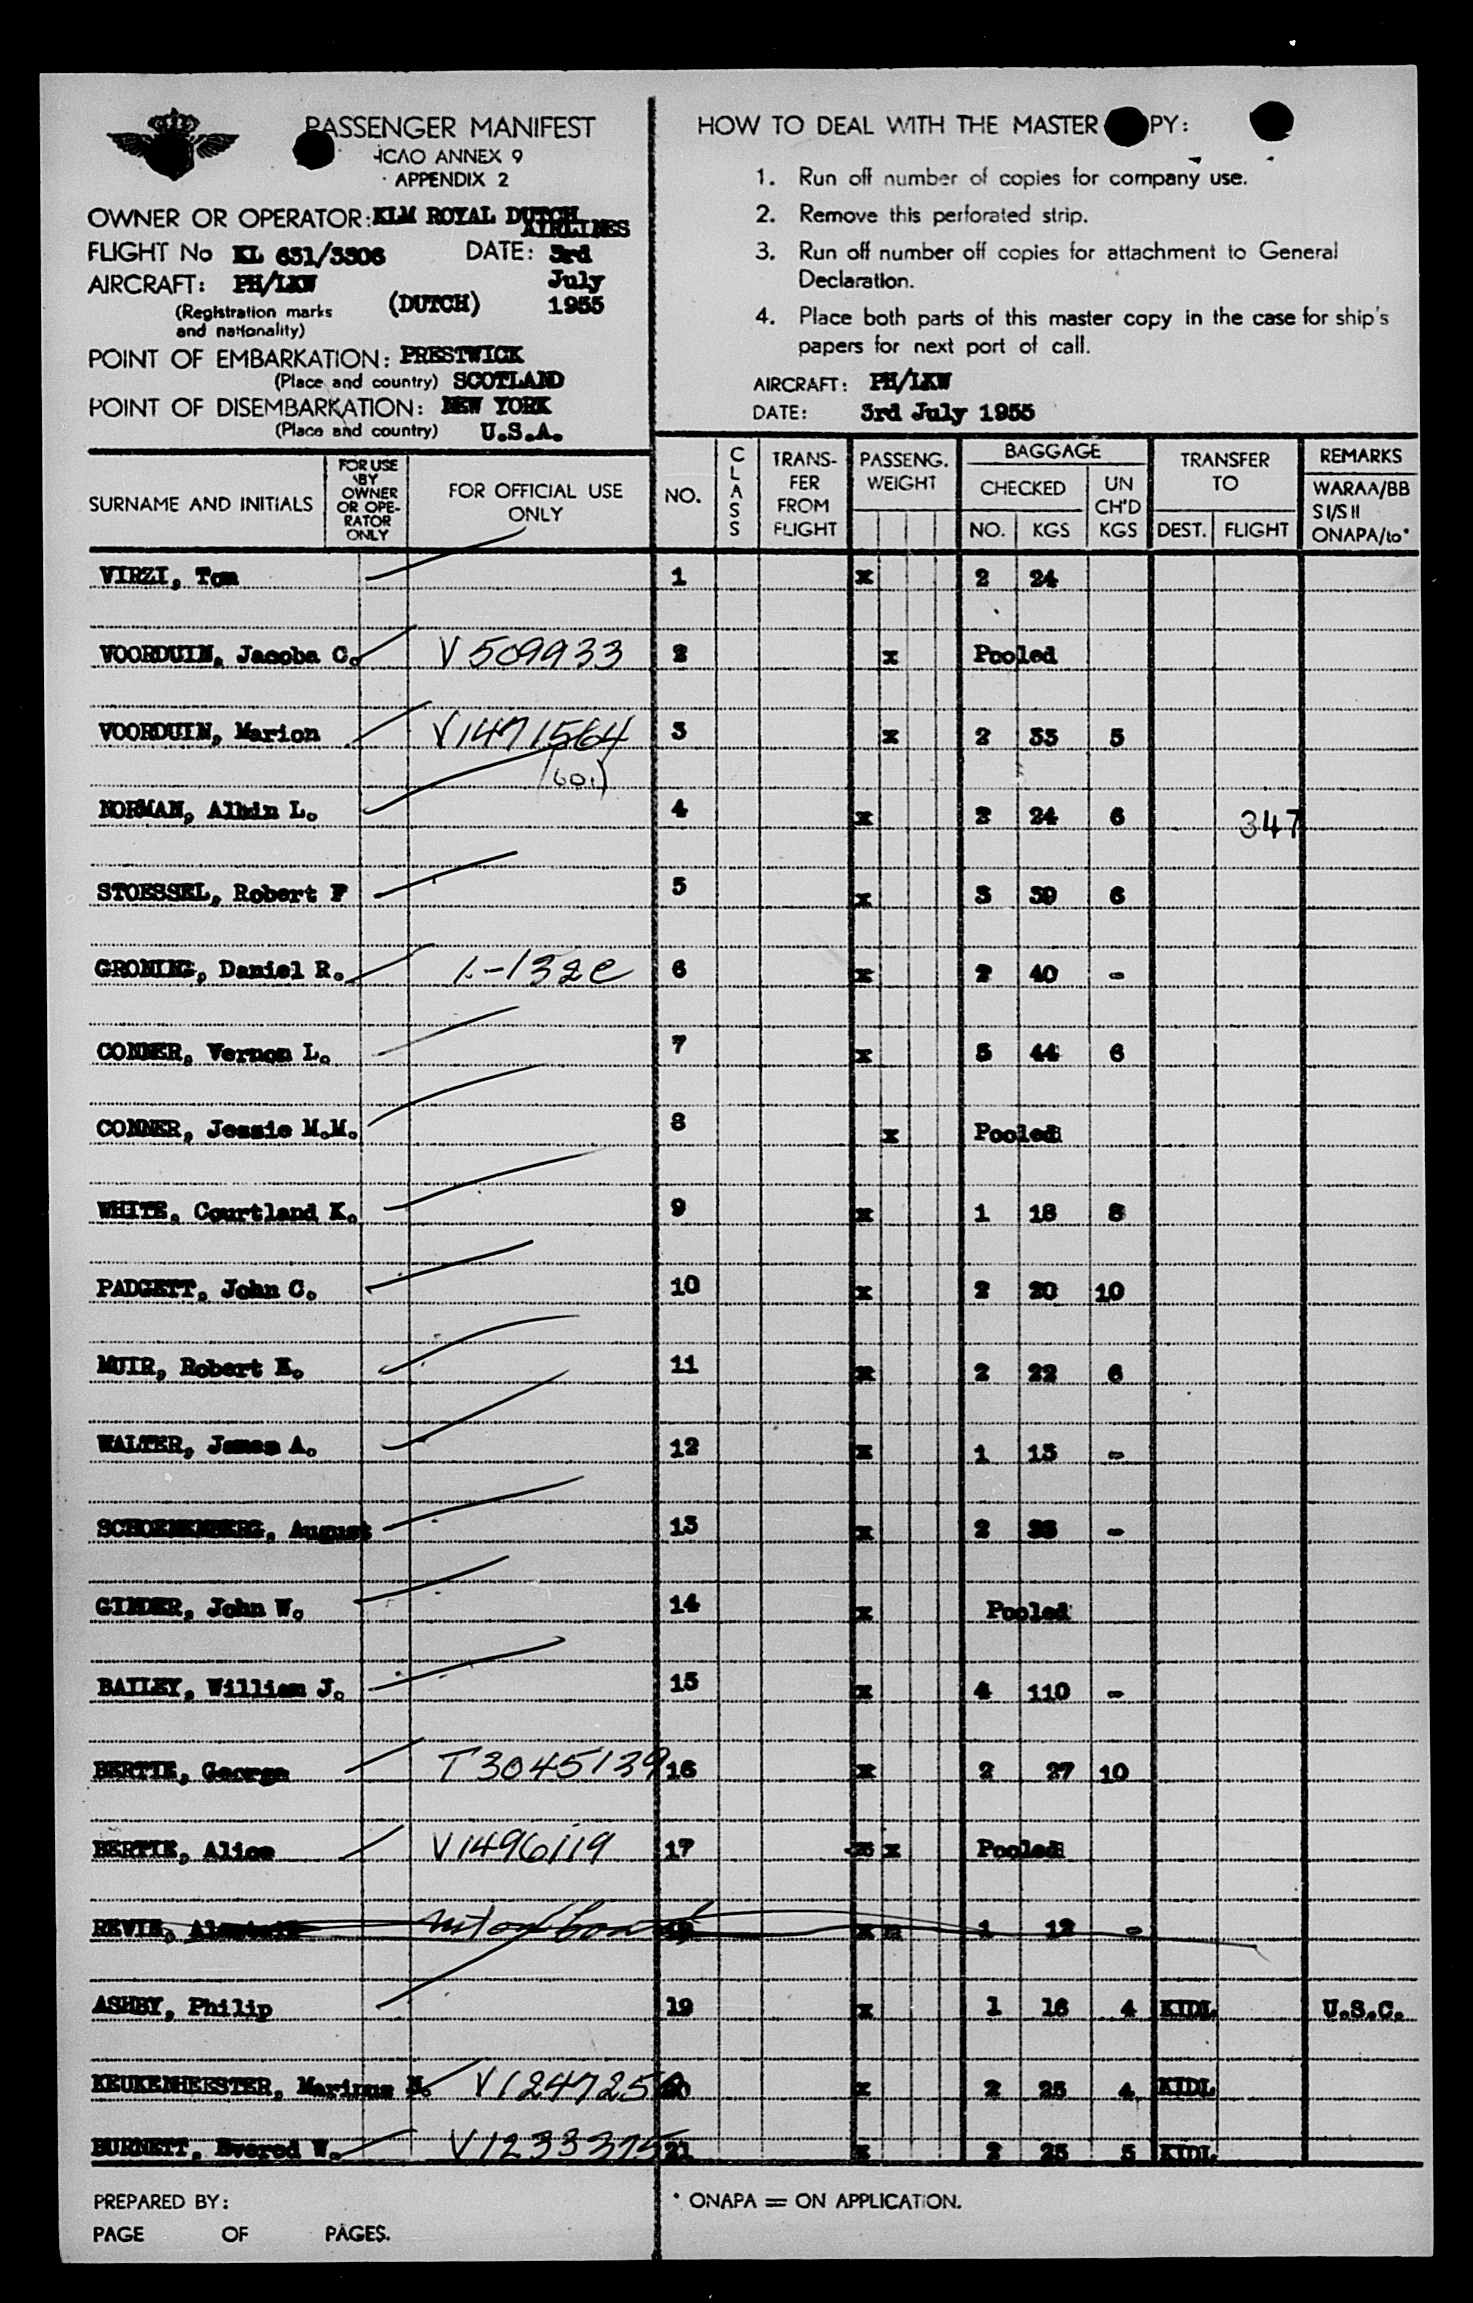 PASSENGER MANIFEST
ICAO ANNEX 9
APPENDIX 2
OWNER OR OPERATOR: KLM ROYAL DUTCH AIRLINES
FLIGHT No KL 631/3306 DATE: 3rd July 1955
AIRCRAFT: PH/LKW (DUTCH)
(Registration marks
and nationality)
POINT OF EMBARKATION: PRESTWICK
(Place and country) SCOTLAND
POINT OF DISEMBARKATION: NEW YORK
(Place and country) U.S.A.
HOW TO DEAL WITH THE MASTER PY:
1. Run off number of copies for company use.
2. Remove this perforated strip.
3. Run off number off copies for attachment to General
Declaration.
4. Place both parts of this master copy in the case for ship's
papers for next port of call.
AIRCRAFT: PH/LKW
DATE: 3rd July 1955
SURNAME AND INITIALS
FOR USE BY OWNER OR OPE-RATOR ONLY
FOR OFFICIAL USE ONLY
NO.
CLASS
TRANS-FER FROM FLIGHT
PASSENG. WEIGHT
BAGGAGE
CHECKED
NO. KGS
UN CH'D KGS
TRANSFER TO
DEST. FLIGHT
REMARKS
WARAA/BB
SI/SII
ONAPA/to*
VIRZI, Tom 1 x 2 24
VOORDUIN, Jacoba C. V509933 2 x Pooled
VOORDUIN, Marion V1471564 3 x 2 33 5
(601)
NORMAN, Albin L. 4 x 2 24 6 347
STOESSEL, Robert F 5 x 3 39 6
GRONING, Daniel R. 1.-132c 6 x 2 40 -
CONNER, Vernon L. 7 x 5 44 6
CONNER, Jessie M.M. 8 x Pooled
WHITE, Courtland K. 9 x 1 18 8
PADGETT, John C. 10 x 2 20 10
MUIR, Robert E. 11 x 2 22 6
WALTER, James A. 12 x 1 15 -
SCHOENENBERG, August 13 x 2 -
GINDER, John W. 14 x Pooled
BAILEY, William J. 15 x 4 110 -
BERTIE, George T3045139 16 x 2 27 10
BERTIE, Alice V1496119 17 x x Pooled
REVIE, Alastair not on board 18 x 1 12 -
ASHBY, Philip 19 x 1 16 4 KIDL U.S.C.
KEUKENMEESTER, Marinus N. 20 x 2 25 4 KIDL
BURNETT, Evered W. V1233375 21 x 2 25 5 KIDL
PREPARED BY:
PAGE OF PAGES.
* ONAPA = ON APPLICATION.